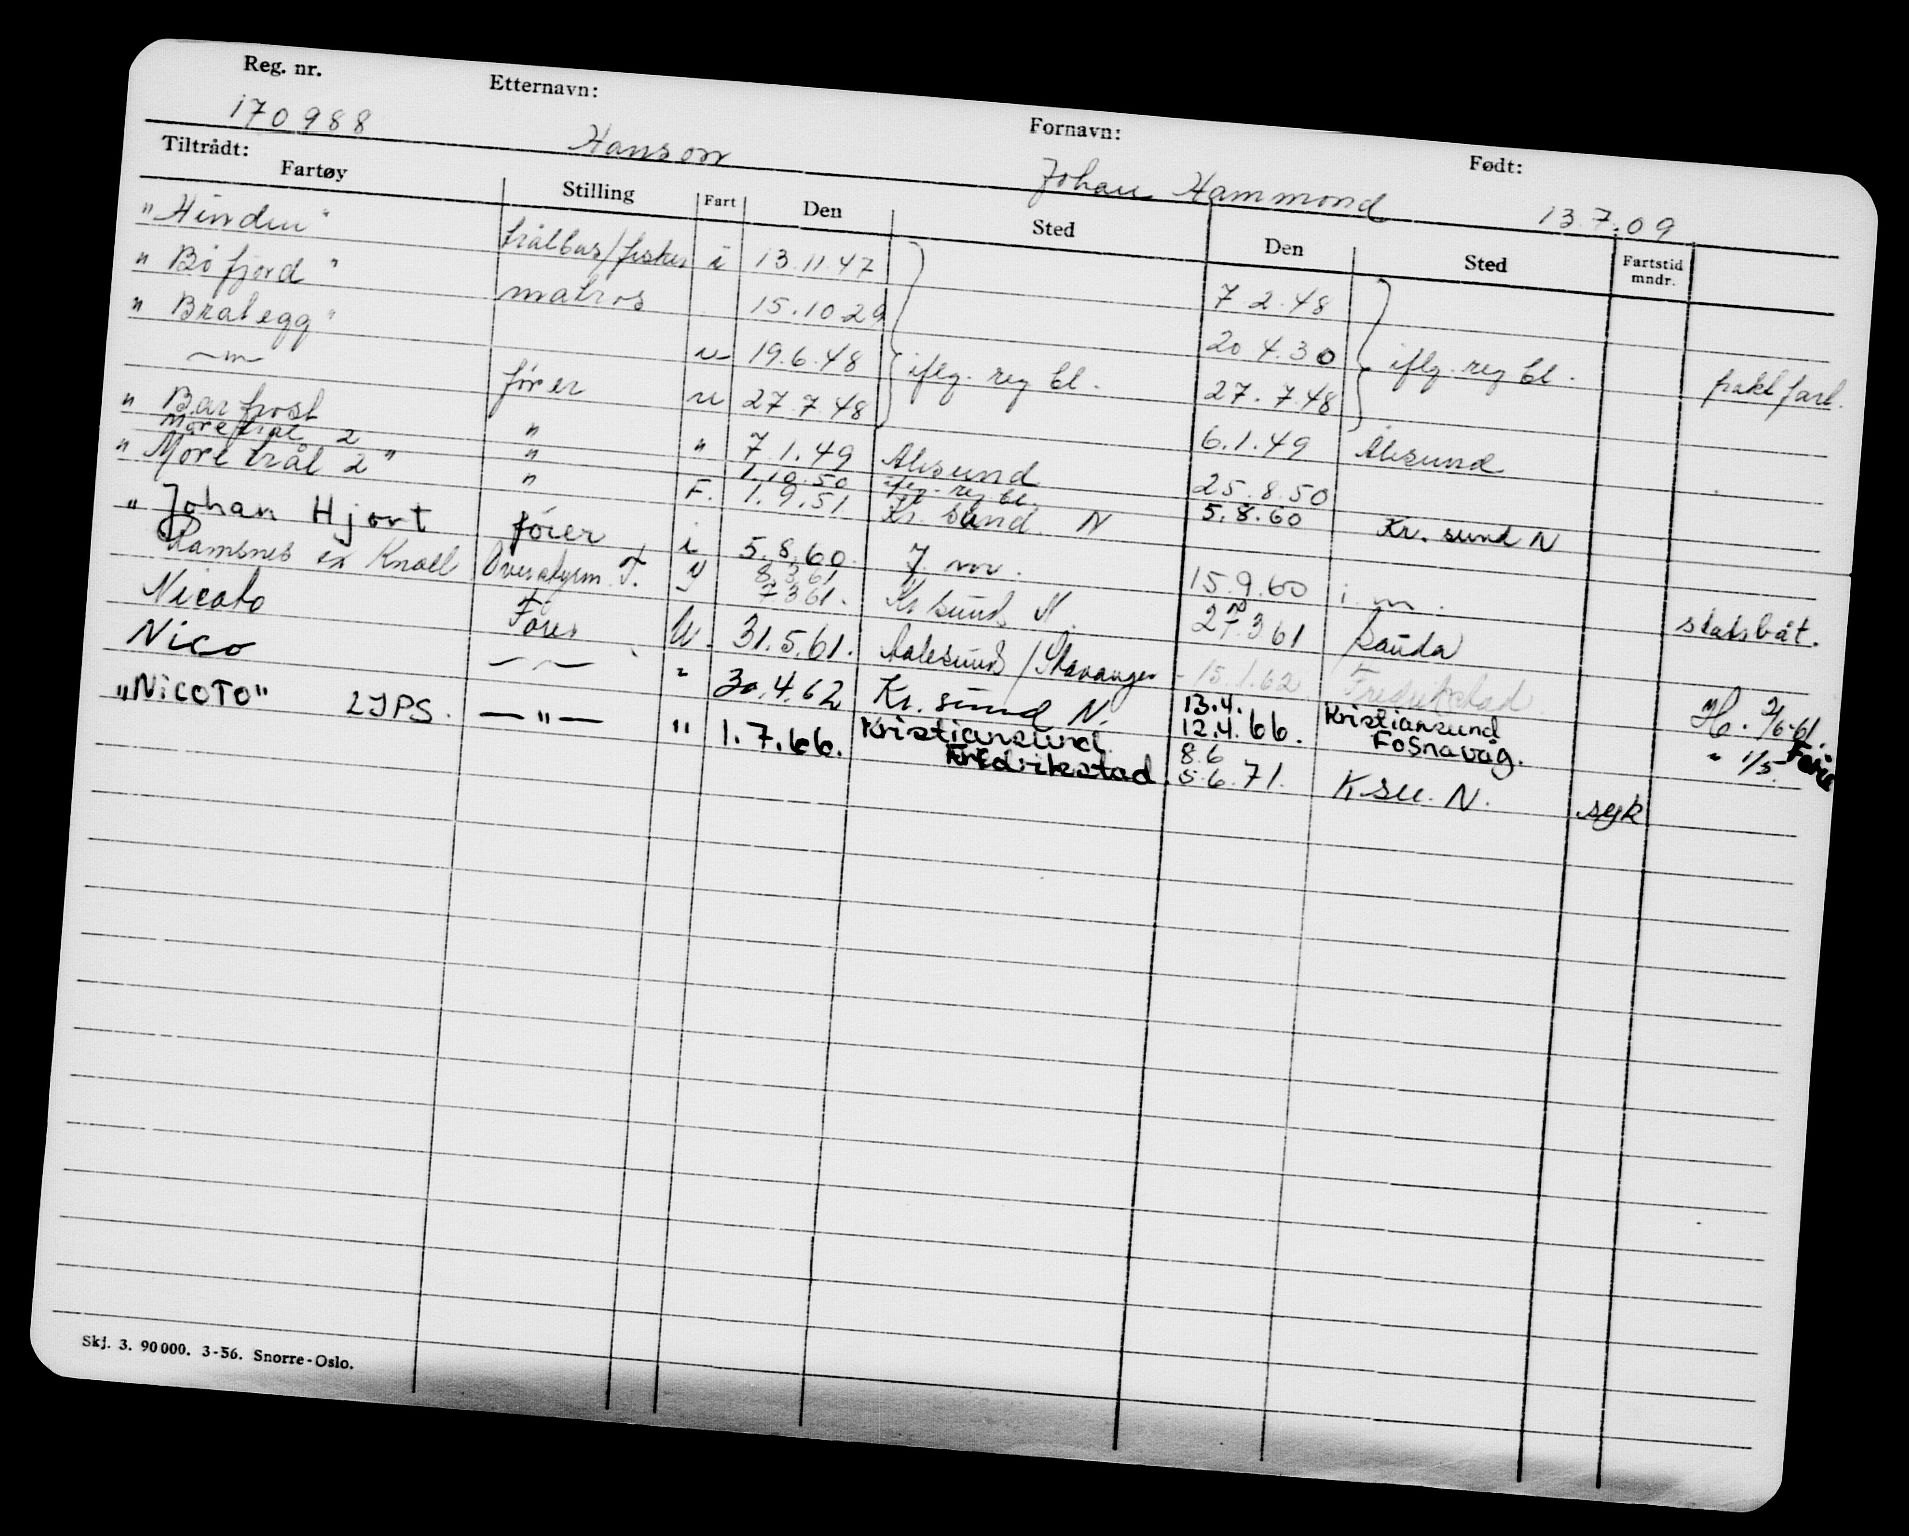 Reg. nr. Etternavn: Fornavn: Født:
170988 Hanson Johan Hammond 13.7.09
Tiltrådt:
Fartøy Stilling Fart Den Sted Den Sted Fartstid mndr.
"Hindu" trålbas/fisker i 13.11.47 7.2.48
" Bøfjord " matros 15.10.29 20.4.30
" Brategg " u 19.6.48 iflg. reg bl. 27.7.48 iflg. reg bl. frakt fart.
—"— fører u 27.7.48 6.1.49 Ålesund
" Barfrost " " 7.1.49 Ålesund 25.8.50
Møretrål 2 " 1.10.50 iflg. reg bl.
" Møretrål 2 " " F. 1.9.51 Kr. sund N 5.8.60 Kr. sund N
" Johan Hjort fører i 5.8.60 15.9.60 statsbåt.
Ramsnes ex Knoll 8.3.61
7.3.61. Kr sund N. 27.3.61 Sauda
Nicoto Fører U. 31.5.61. Aalesund / Stavanger - 15.1.62 Fredrikstad H. 2/6-61.
Nico —"— " 30.4.62 Kr. sund N. 13.4. Kristiansund " 1/5.
12.4.66. Fosnavåg.
"NICOTO" LJPS. —"— " 1.7.66. Kristiansund 8.6
Fredrikstad 5.6.71. K su. N. syk
Skj. 3. 90000. 3-56. Snorre-Oslo.